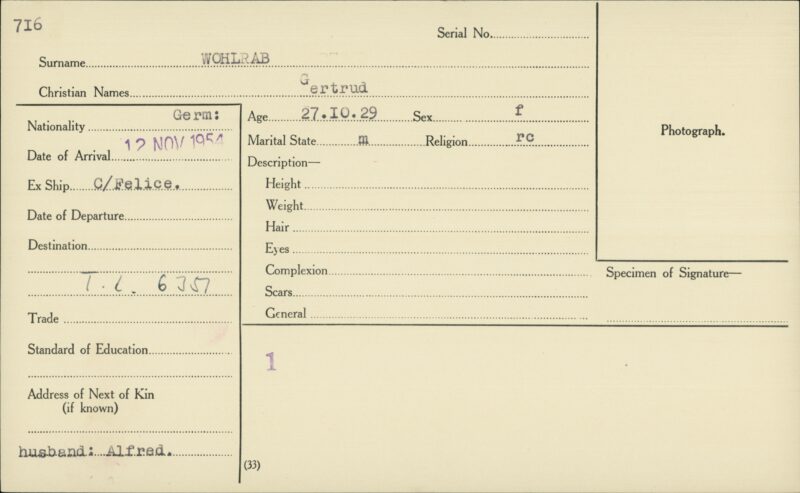 716
Serial No.
Surname WOHLRAB
Christian Names Gertrud
Nationality Germ:
Date of Arrival 12 NOV 1954
Ex Ship C/Felice.
Date of Departure
Destination
T. L. 6351
Trade
Standard of Education
Address of Next of Kin
(if known)
husband: Alfred.
Age 27.10.29 Sex f
Marital State m Religion rc
Description—
Height
Weight
Hair
Eyes
Complexion
Scars
General
1
(33)
Photograph.
Specimen of Signature—